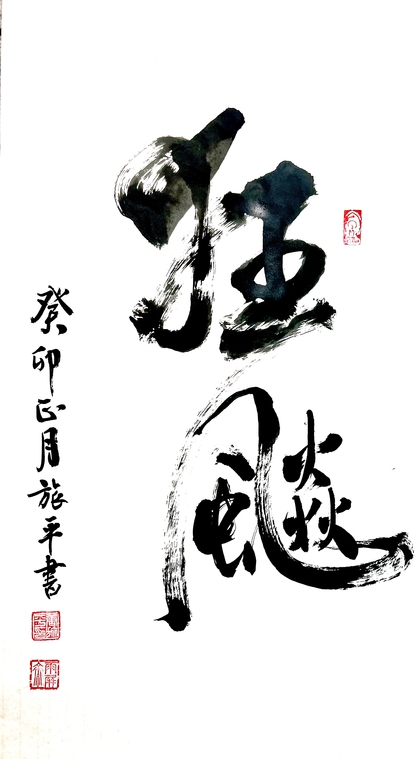 狂飈
癸卯正月旅平書